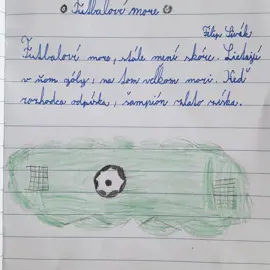 Futbalové more
Filip Sivák
Futbalové more, stále mení skóre. Lietajú
v ňom góly, na tom veľkom mori. Keď
rozhodca odpíska, šampión zlato získa.